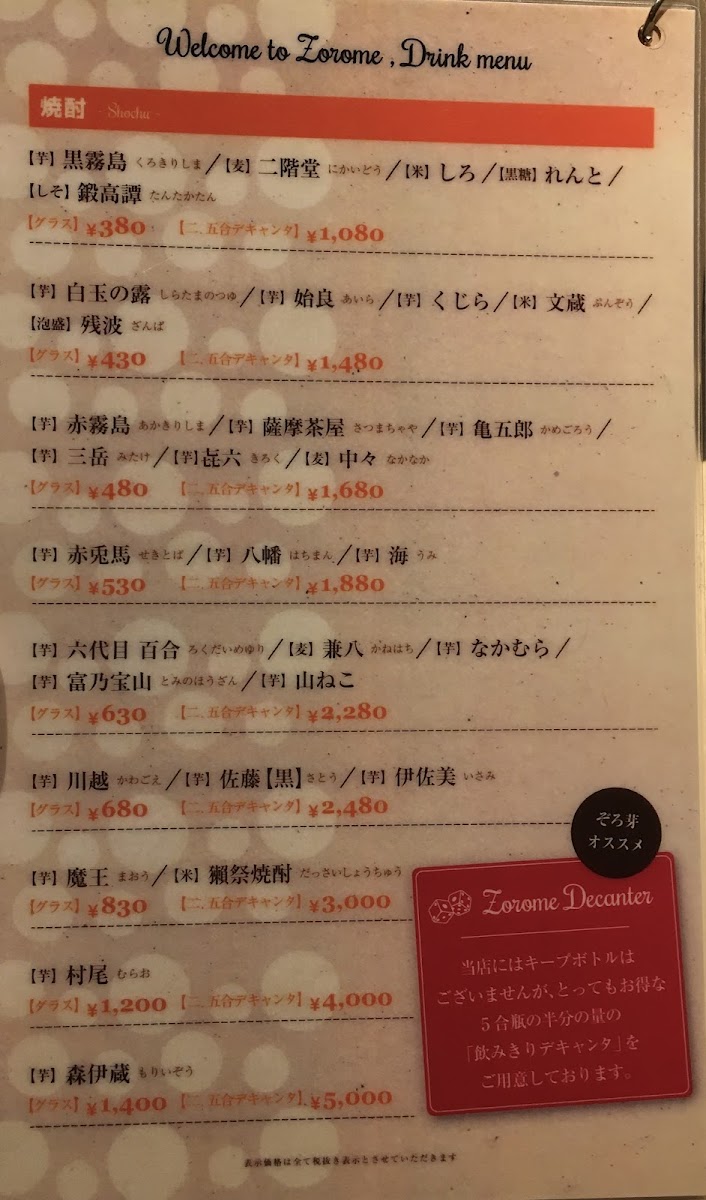 Welcome to Zorome , Drink menu
焼酎 - Shochu -
【芋】黒霧島 くろきりしま／【麦】二階堂 にかいどう／【米】しろ／【黒糖】れんと／
【しそ】鍛高譚 たんたかたん
【グラス】¥380 【二、五合デキャンタ】¥1,080
【芋】白玉の露 しらたまのつゆ／【芋】姶良 あいら／【芋】くじら／【米】文蔵 ぶんぞう／
【泡盛】残波 ざんぱ
【グラス】¥430 【二、五合デキャンタ】¥1,480
【芋】赤霧島 あかきりしま／【芋】薩摩茶屋 さつまちゃや／【芋】亀五郎 かめごろう／
【芋】三岳 みたけ／【芋】㐂六 きろく／【麦】中々 なかなか
【グラス】¥480 【二、五合デキャンタ】¥1,680
【芋】赤兎馬 せきとば／【芋】八幡 はちまん／【芋】海 うみ
【グラス】¥530 【二、五合デキャンタ】¥1,880
【芋】六代目 百合 ろくだいめゆり／【麦】兼八 かねはち／【芋】なかむら／
【芋】富乃宝山 とみのほうざん／【芋】山ねこ
【グラス】¥630 【二、五合デキャンタ】¥2,280
【芋】川越 かわごえ／【芋】佐藤【黒】さとう／【芋】伊佐美 いさみ
【グラス】¥680 【二、五合デキャンタ】¥2,480
【芋】魔王 まおう／【米】獺祭焼酎 だっさいしょうちゅう
【グラス】¥830 【二、五合デキャンタ】¥3,000
【芋】村尾 むらお
【グラス】¥1,200 【二、五合デキャンタ】¥4,000
【芋】森伊蔵 もりいぞう
【グラス】¥1,400 【二、五合デキャンタ】¥5,000
ぞろ芽
オススメ
Zorome Decanter
当店にはキープボトルは
ございませんが、とってもお得な
5合瓶の半分の量の
「飲みきりデキャンタ」を
ご用意しております。
表示価格は全て税抜き表示とさせていただきます